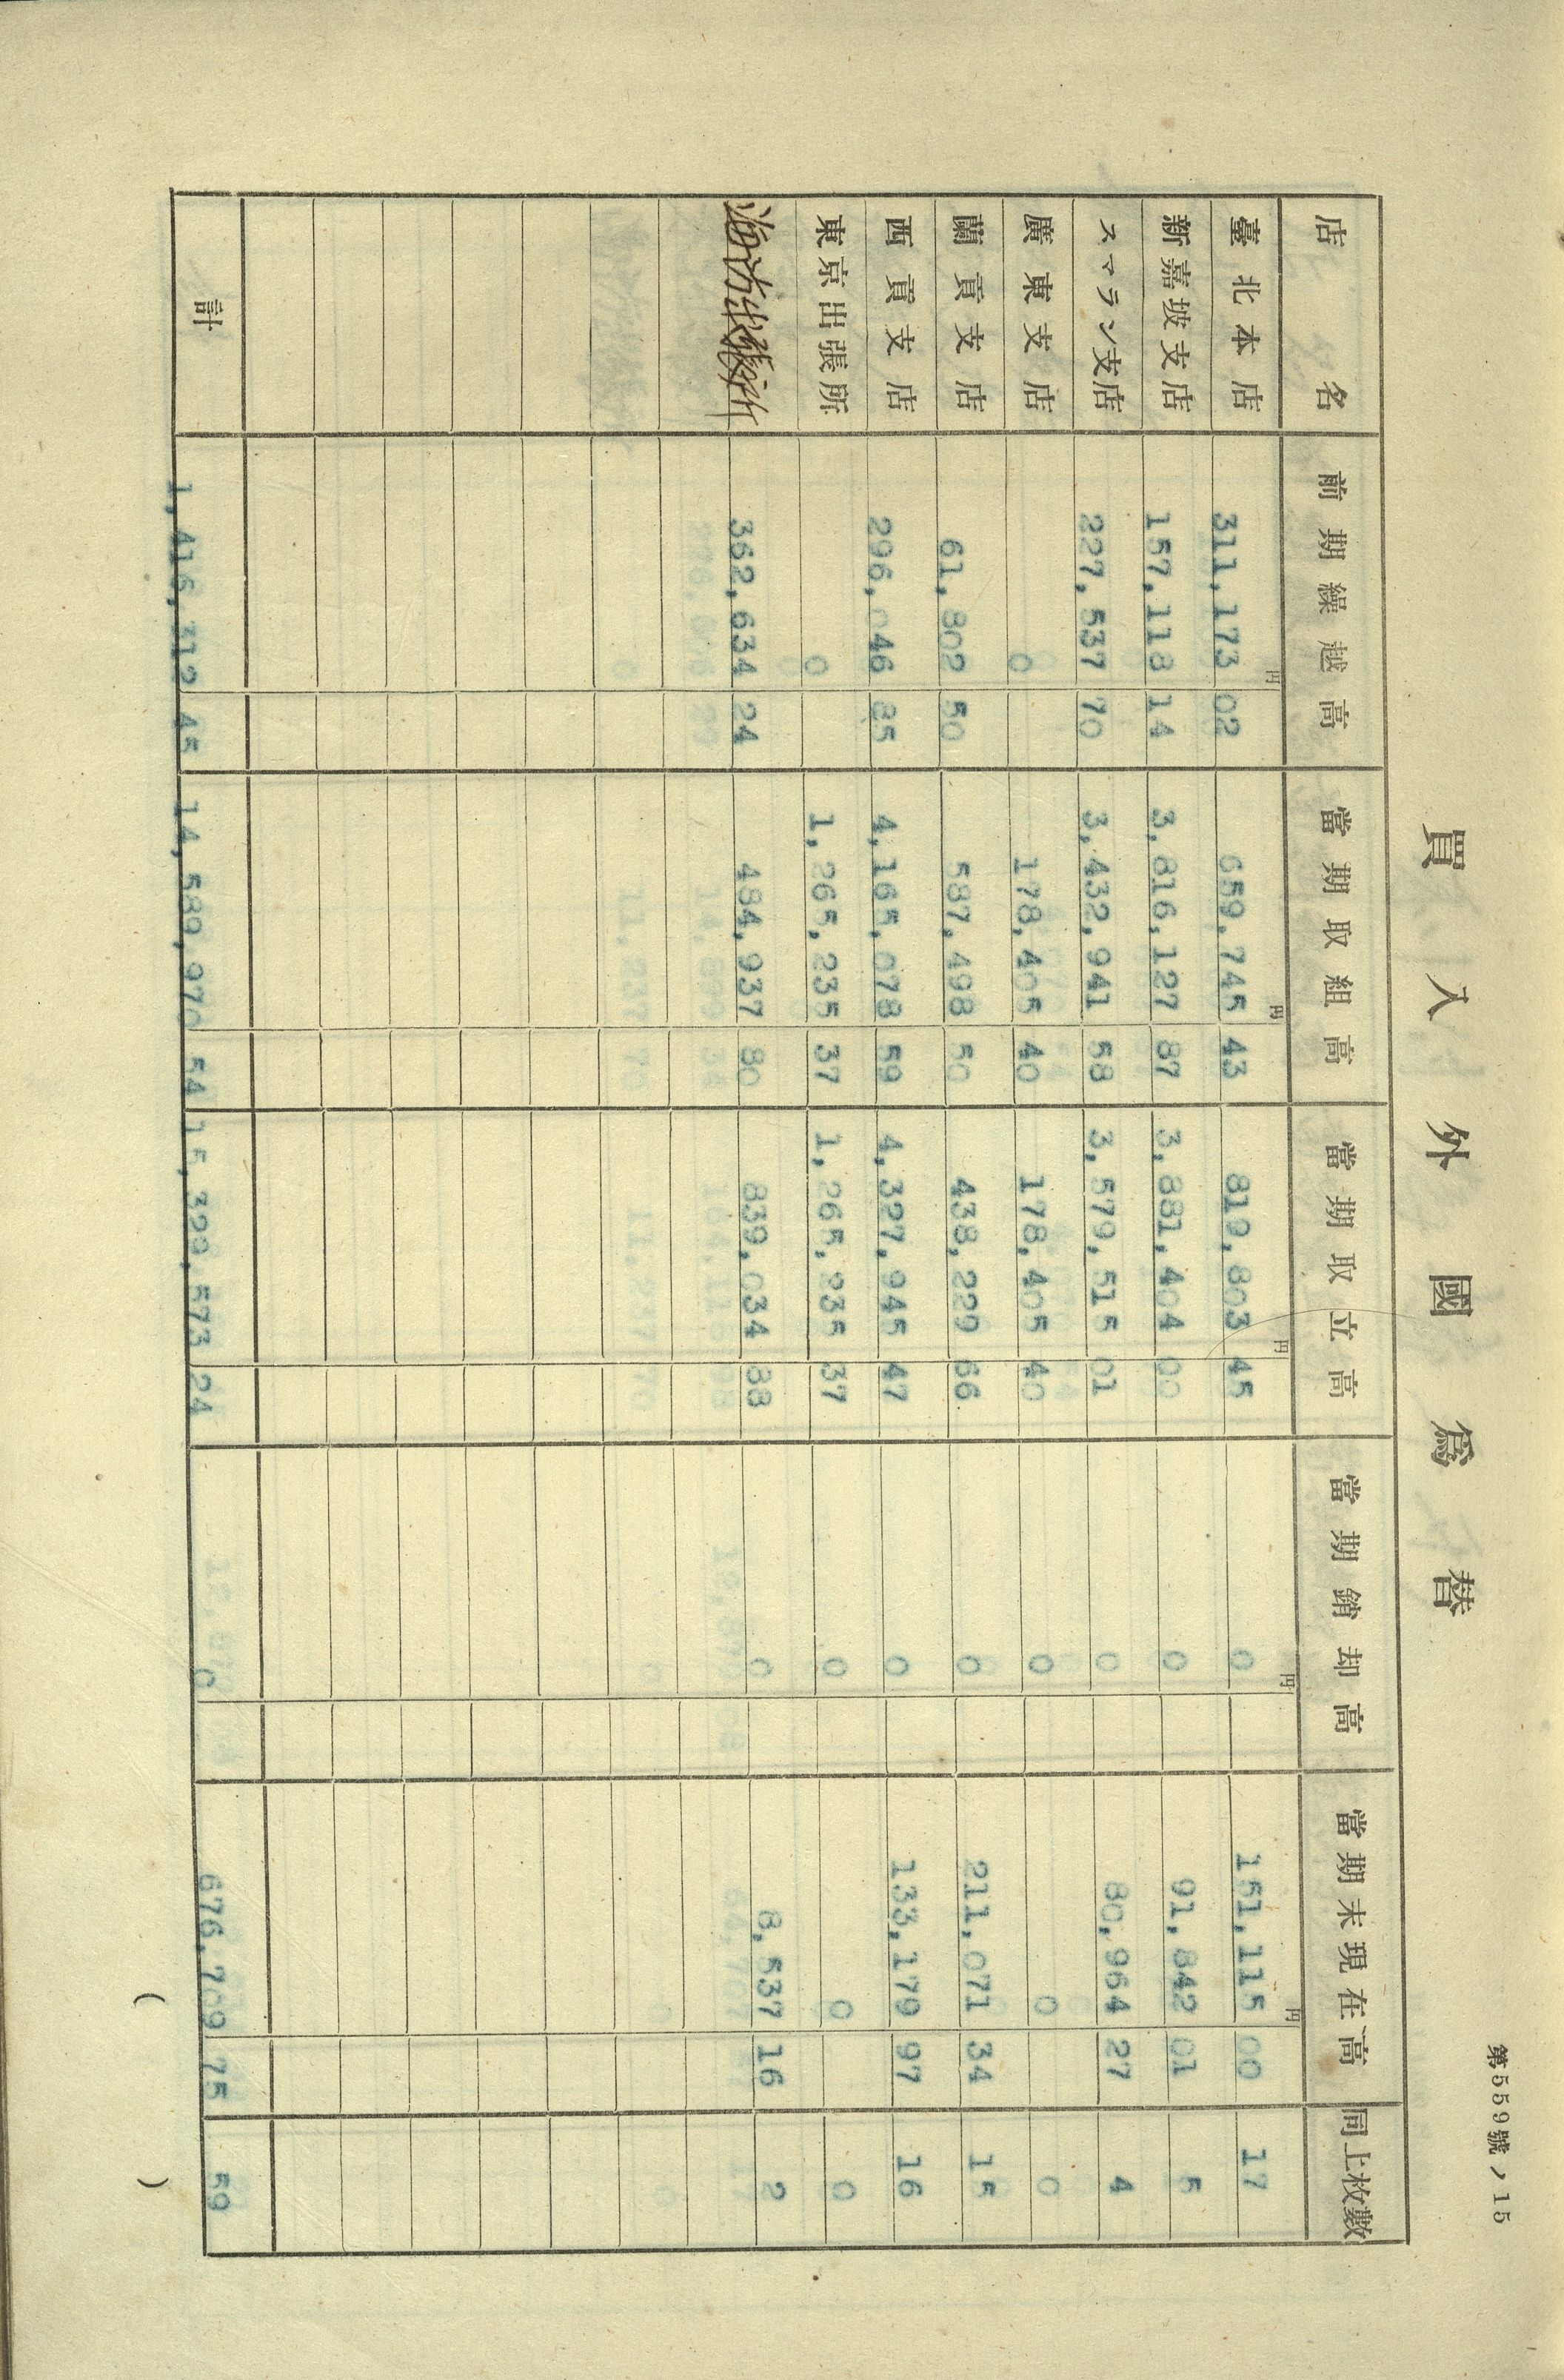 第559號ノ15
買入外國爲替
店名 前期繰越高 當期取組高 當期取立高 當期銷却高 當期末現在高 同上枚數
円 円 円 円 円
臺北本店 311,173 02 659,745 43 819,803 45 0 151,115 00 17
新嘉坡支店 157,118 14 3,816,127 87 3,881,404 00 0 91,842 01 5
スマラン支店 227,537 70 3,432,941 58 3,579,515 01 0 80,964 27 4
廣東支店 0 178,405 40 178,405 40 0 0 0
蘭貢支店 61,802 50 587,498 50 438,229 66 0 211,071 34 15
西貢支店 296,046 85 4,165,078 59 4,327,945 47 0 133,179 97 16
東京出張所 0 1,265,235 37 1,265,235 37 0 0 0
海防出張所 362,634 24 484,937 80 839,034 88 0 8,537 16 2
計 1,416,312 45 14,589,970 54 15,329,573 24 0 676,709 75 59
( )